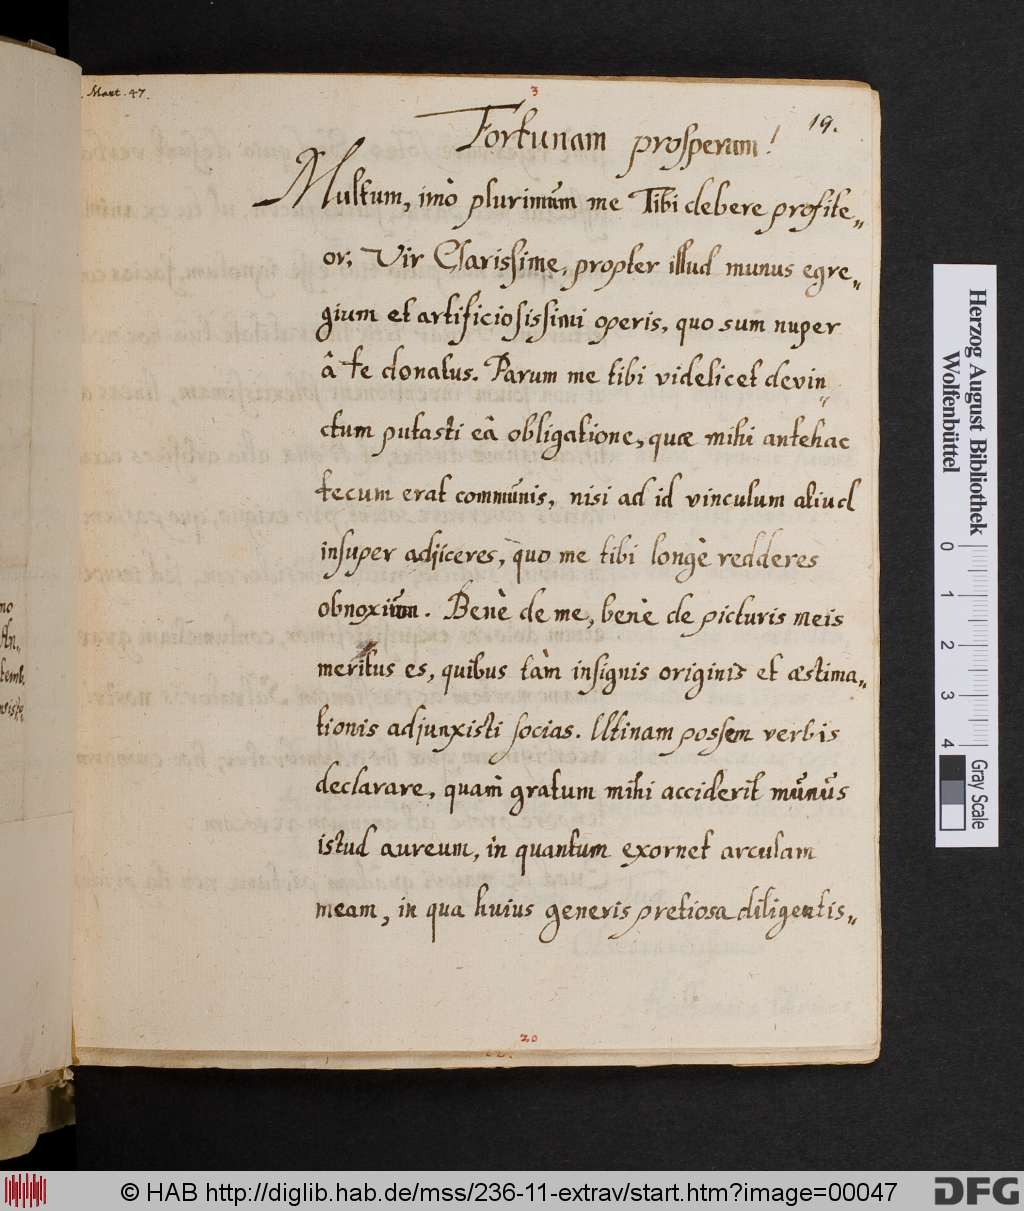 . Mart. 47.
3
19.
Fortunam prosperam!
Multum, imò plurimum me Tibi debere profite„
or, Vir Clarissime, propter illud munus egre„
gium et artificiosissimi operis, quo sum nuper
â te donatus. Parum me tibi videlicet devin„
ctum putasti eâ obligatione, quæ mihi antehac
tecum erat communis, nisi ad id vinculum aliud
insuper adjiceres, quo me tibi longè redderes
obnoxium. Benè de me, benè de picturis meis
meritus es, quibus tàm insignis originis et æstima„
tionis adjunxisti socias. Utinam possem verbis
declarare, quam gratum mihi acciderit munus
istud aureum, in quantum exornet arculam
meam, in qua huius generis pretiosa diligentis„
20
no
An.
temb.
Herzog August Bibliothek
Wolfenbüttel
0 1 2 3 4
Gray Scale
© HAB http://diglib.hab.de/mss/236-11-extrav/start.htm?image=00047
DFG